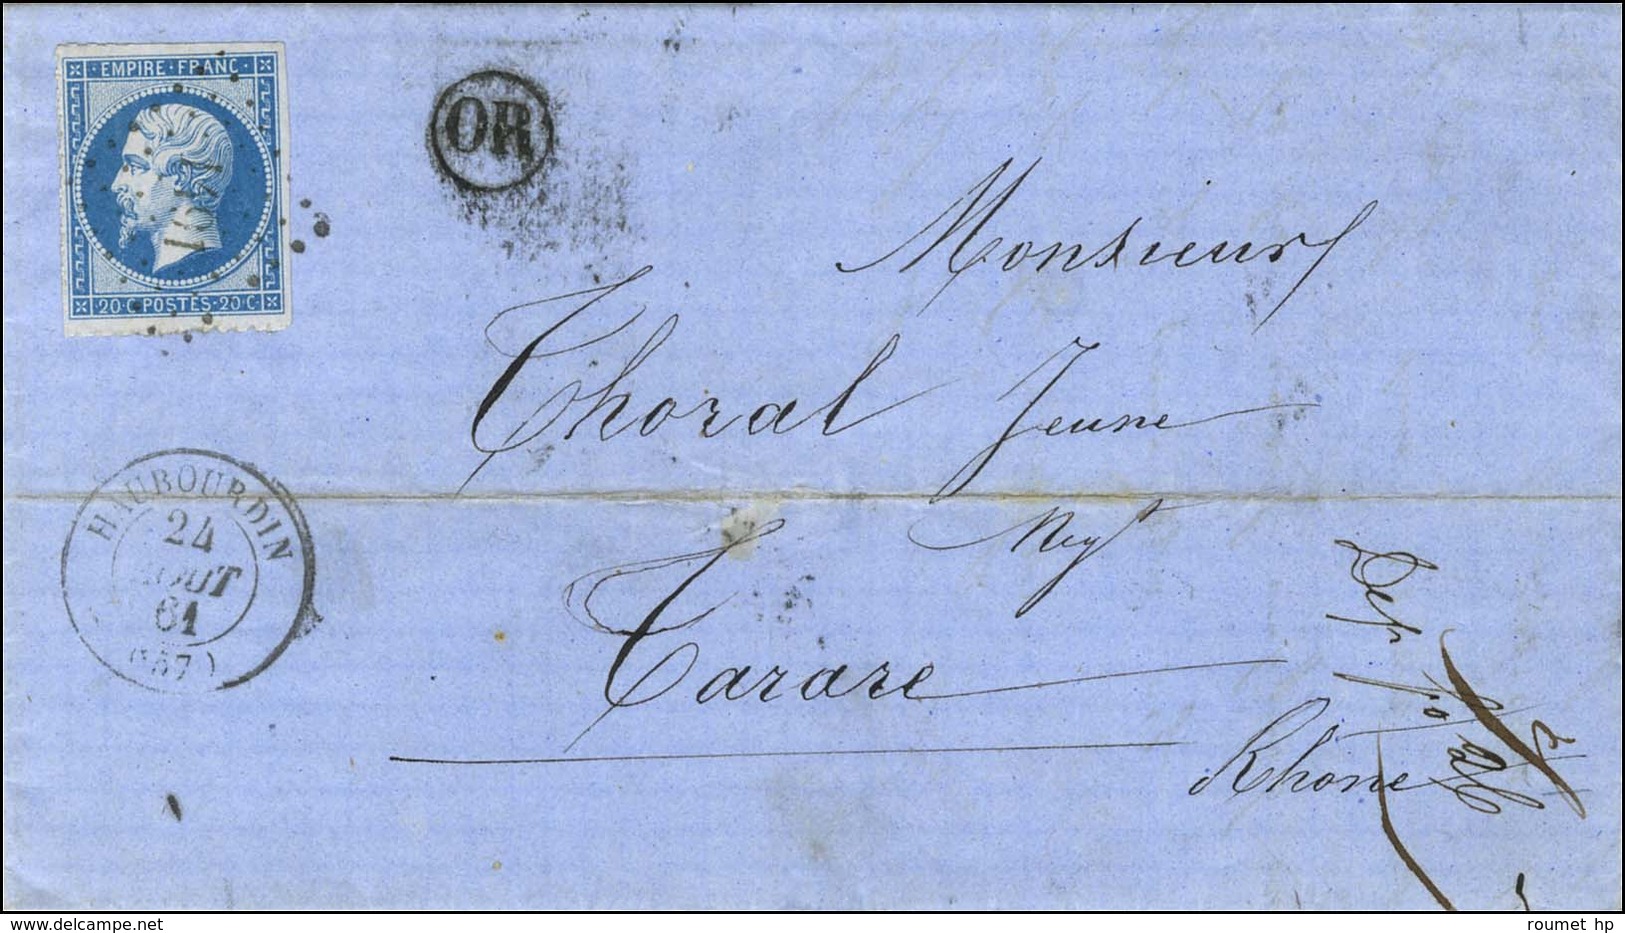 · EMPIRE · FRANC ·
20 · C · POSTES · 20 · C
OR
Monsieur
Thoral Jeune
Negt
Tarare
Rhône
HAUBOURDIN
24
AOUT
61
(57)
delcampe.net
roumet hp